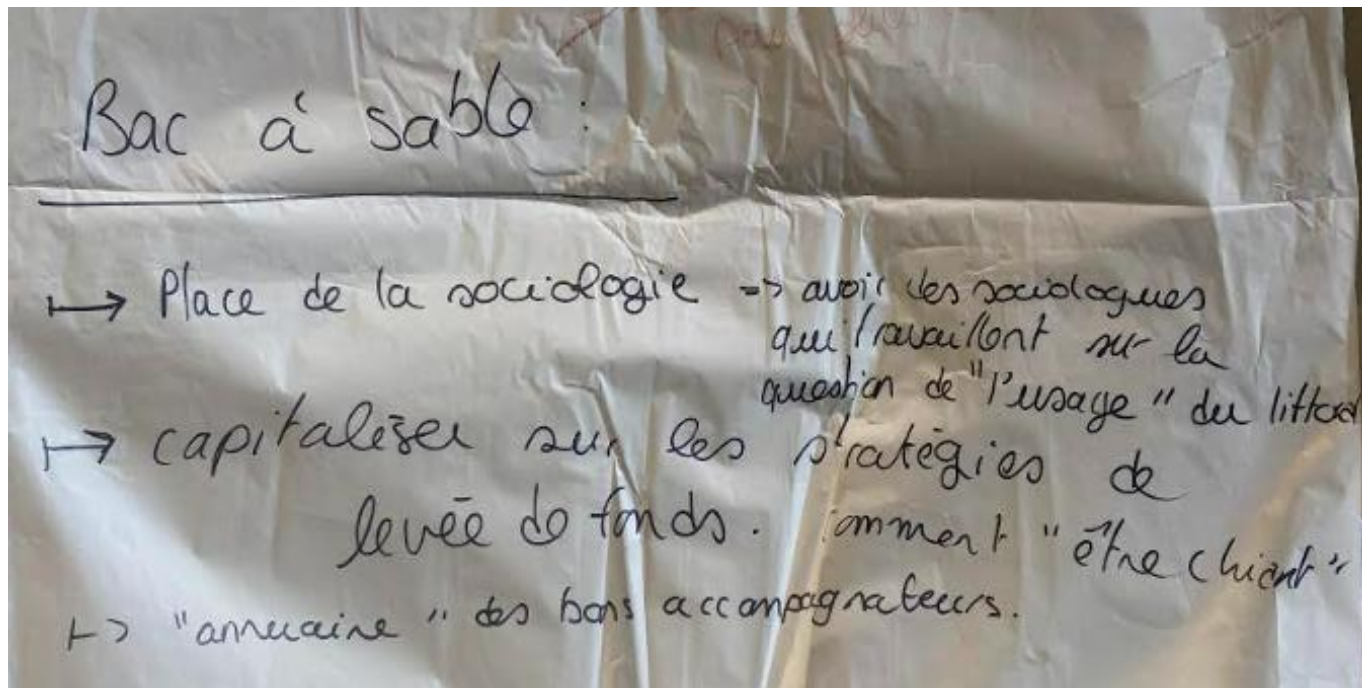 Bac à sable :
↦ Place de la sociologie => avoir des sociologues
qui travaillent sur la
question de "l'usage" du littoral
↦ capitaliser sur les stratégies de
levée de fonds. comment "être chiant"
↦ "annuaire" des bons accompagnateurs.